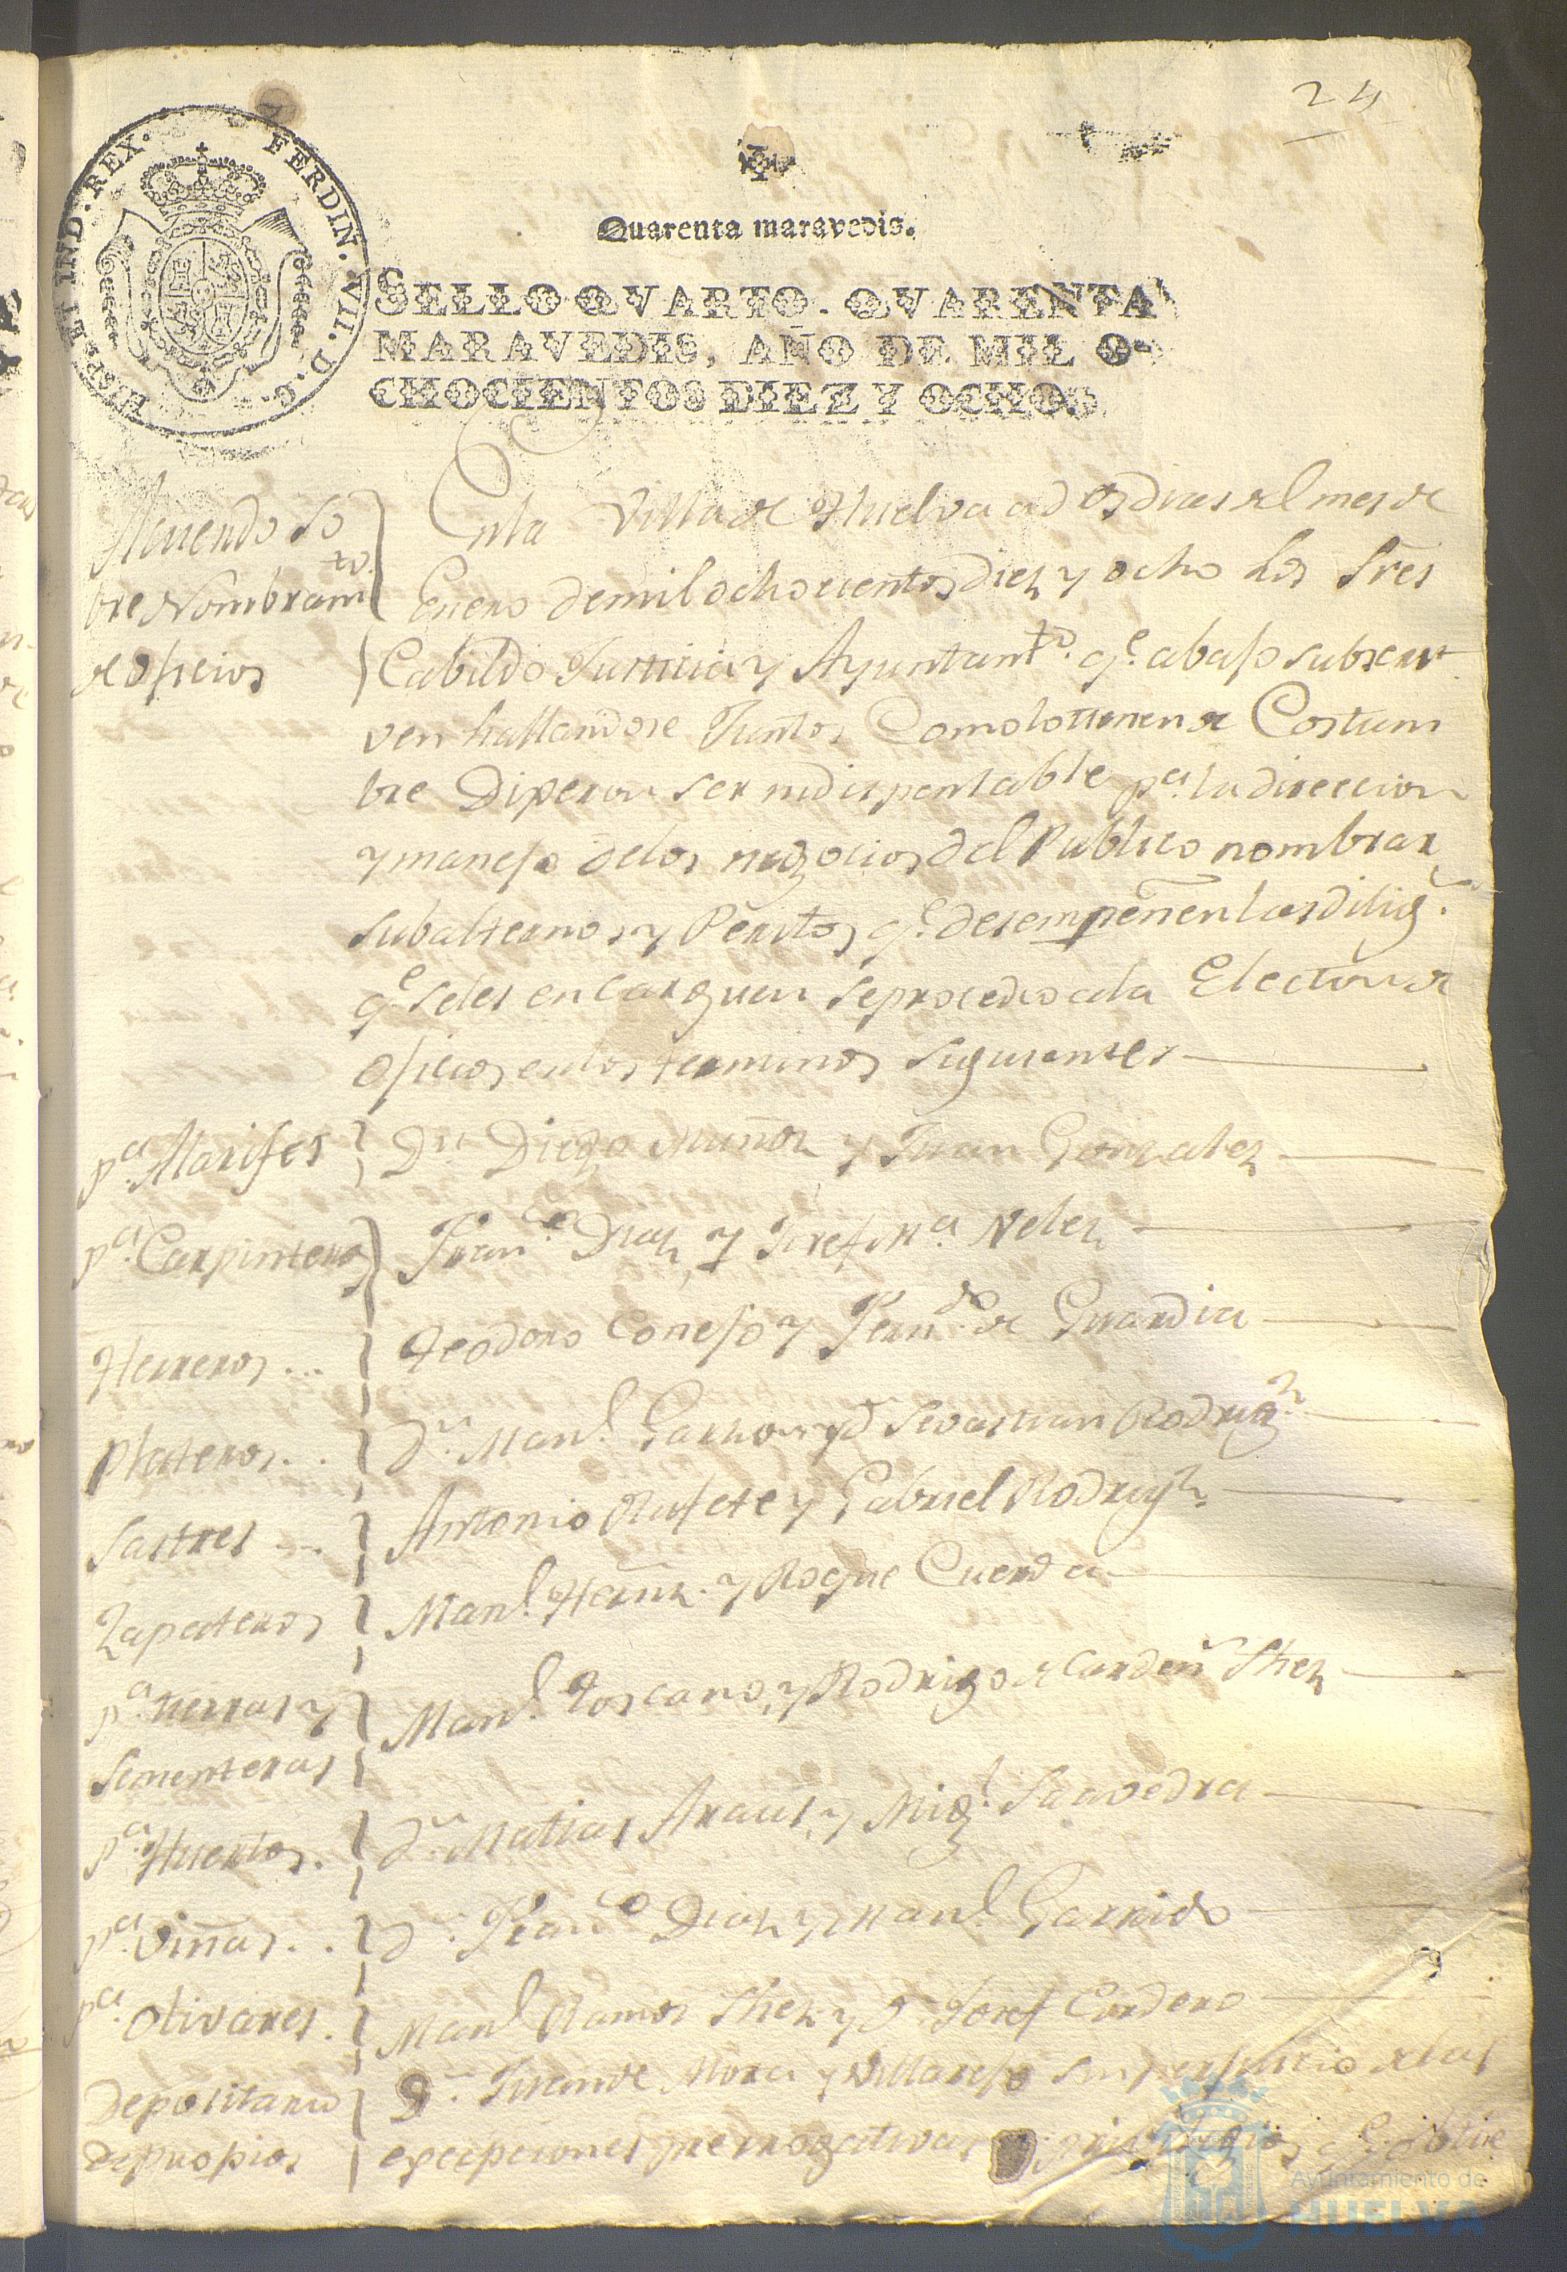 24
HISP. ET IND. REX. FERDIN. VII. D. G.
Quarenta maravedis.
SELLO QVARTO. QVARENTA
MARAVEDIS, AÑO DE MIL O-
CHOCIENTOS DIEZ Y OCHO.
Acuerdo so
bre Nombram.to
de oficios
En la Villa de Huelva a dos dias del mes de
Enero de mil ochocientos diez y ocho Los Sres
Cabildo Justicia y Ayuntam.to q.e abajo subscri
ven hallandose Juntos Como lo tienen de Costum
bre Dijeron ser indispensable p.a la direccion
y manejo de los negocios del Publico nombrar
subalternos y Peritos q.e desempeñen las dilig.s
q.e seles encarguen se procedio a la Election de
oficios en los terminos siguientes
p.a Alarifes Dn Diego Muñoz y Juan Gonzalez
p.a Carpinteros Fran.co Diaz y Josef M.a Velez
Herreros... Teodoro Conejo y Fern.do de Guardia
Plateros.. d.n Man.l Garzon y d.n Sevastian Rodrig.z
Sastres... Antonio Rufete y Gabriel Rodrig.z
Zapateros Man.l Hernz. y Roque Cuerda
p.a tierras y
Sementeras
Man.l Toscano, y Rodrigo de Cardeñ.s Shez
p.a Huertos. d.n Matias Araus, y Mig.l Saavedra
p.a Viñas.. d.n Fran.co Diaz y Man.l Garrido
p.a Olivares. Man.l Ramos Shez y D.n Josef Cordero
Depositario
de propios
D.n Juan de Mora y Villarejo sin perjuicio de las
excepciones prerrogativas y privilegios q.e obtie
Ayuntamiento de
HUELVA